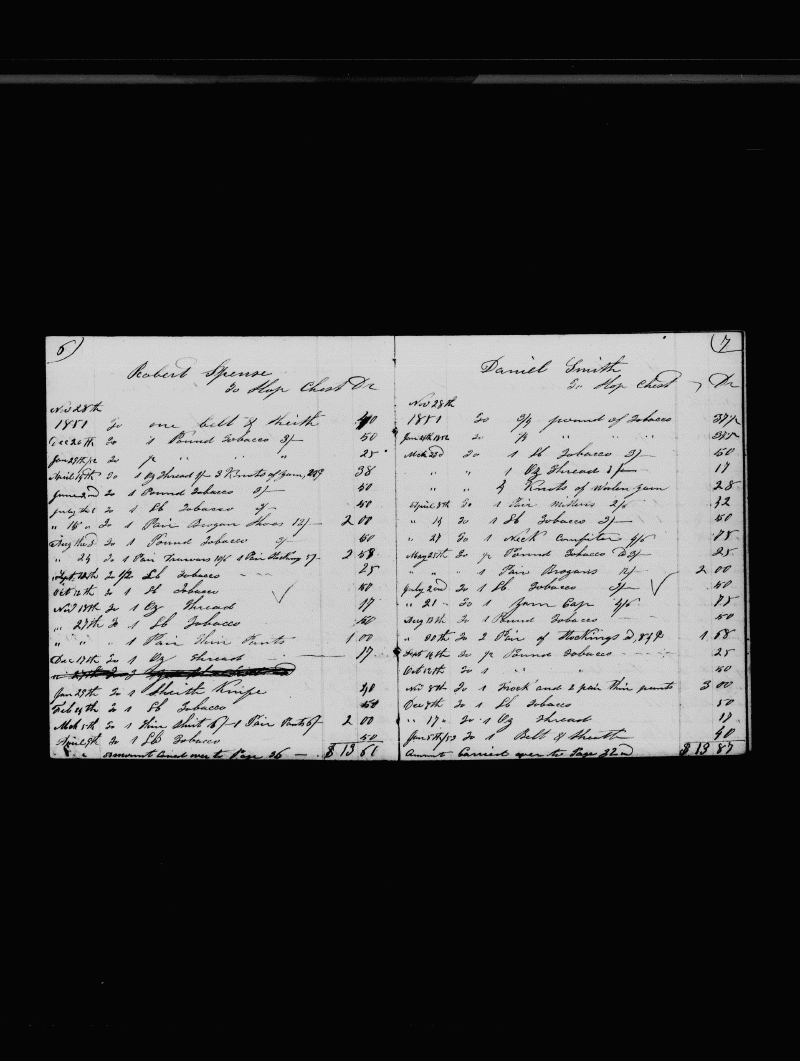 6
Robert Spense
To Slop Chest Dr
Nov 28th
1851 To one belt & sheith 40
Dec 20th To 1 Pound Tobacco 3/- 50
Jan 29th/52 To 1/2 " " " 25
April 15th To 1 Oz Thread 3 Knots of yarn 38
June 2nd To 1 Pound Tobacco 3/- 50
July To 1 Lb Tobacco 3/- 50
" 15 " To 1 Pair Brogan Shoes 12/- 2 00
Aug To 1 Pound Tobacco 3/- 50
" 24 To 1 Pair 1 Pair Stocking 2 58
Sept To 1/2 Lb Tobacco 25
Oct 12th To 1 Lb Tobacco 50
Nov 18th To 1 Oz Thread 17
" 27th To 1 Lb Tobacco 50
" " " 1 Pair Thin Pants 1.00
Dec 17th To 1 Oz Thread 17
Jan 29th To 1 Sheith Knife 40
Feb To 1 Lb Tobacco 50
Mch 5th To 1 Thin Shirt 6/- 1 Pair Pants 6/- 2 00
April 9th To 1 Lb Tobacco 50
Amount over to Page 26 $13 61
7
Daniel Smith
To Slop Chest Dr
Nov 28th
1851 To 3/4 pound of Tobacco 37 1/2
Jan 1852 To " " "
Mch 23d To 1 Lb Tobacco 3/- 50
" " " 1 Oz Thread 1/- 17
" " " 4 Knots of Woolen yarn 28
April 8th To 1 Pair 42
" 14 To 1 Lb Tobacco 3/- 50
" 27 To 1 Neck Comfiter 4/6 75
May 25th To 1/2 Pound Tobacco 25
" " " 1 Pair Brogans 12/- 2 00
July 2nd To 1 Lb Tobacco 3/- 50
" 21 " To 1 Yarn Cap 4/6 75
Aug 13th To 1 Pound Tobacco 50
" 30th To 2 Pair of Stockings 1 58
Sept 14th To 1/2 Pound Tobacco 25
Oct 12th To 1 " " 50
Nov 8th To 1 Frock and 2 pair thin pants 3 00
Dec 7th To 1 Lb Tobacco 50
" 17 " To 1 Oz Thread 17
Jan 5th/53 To 1 Belt & Sheuth 40
Amount Carried over to Page 32nd $13 87